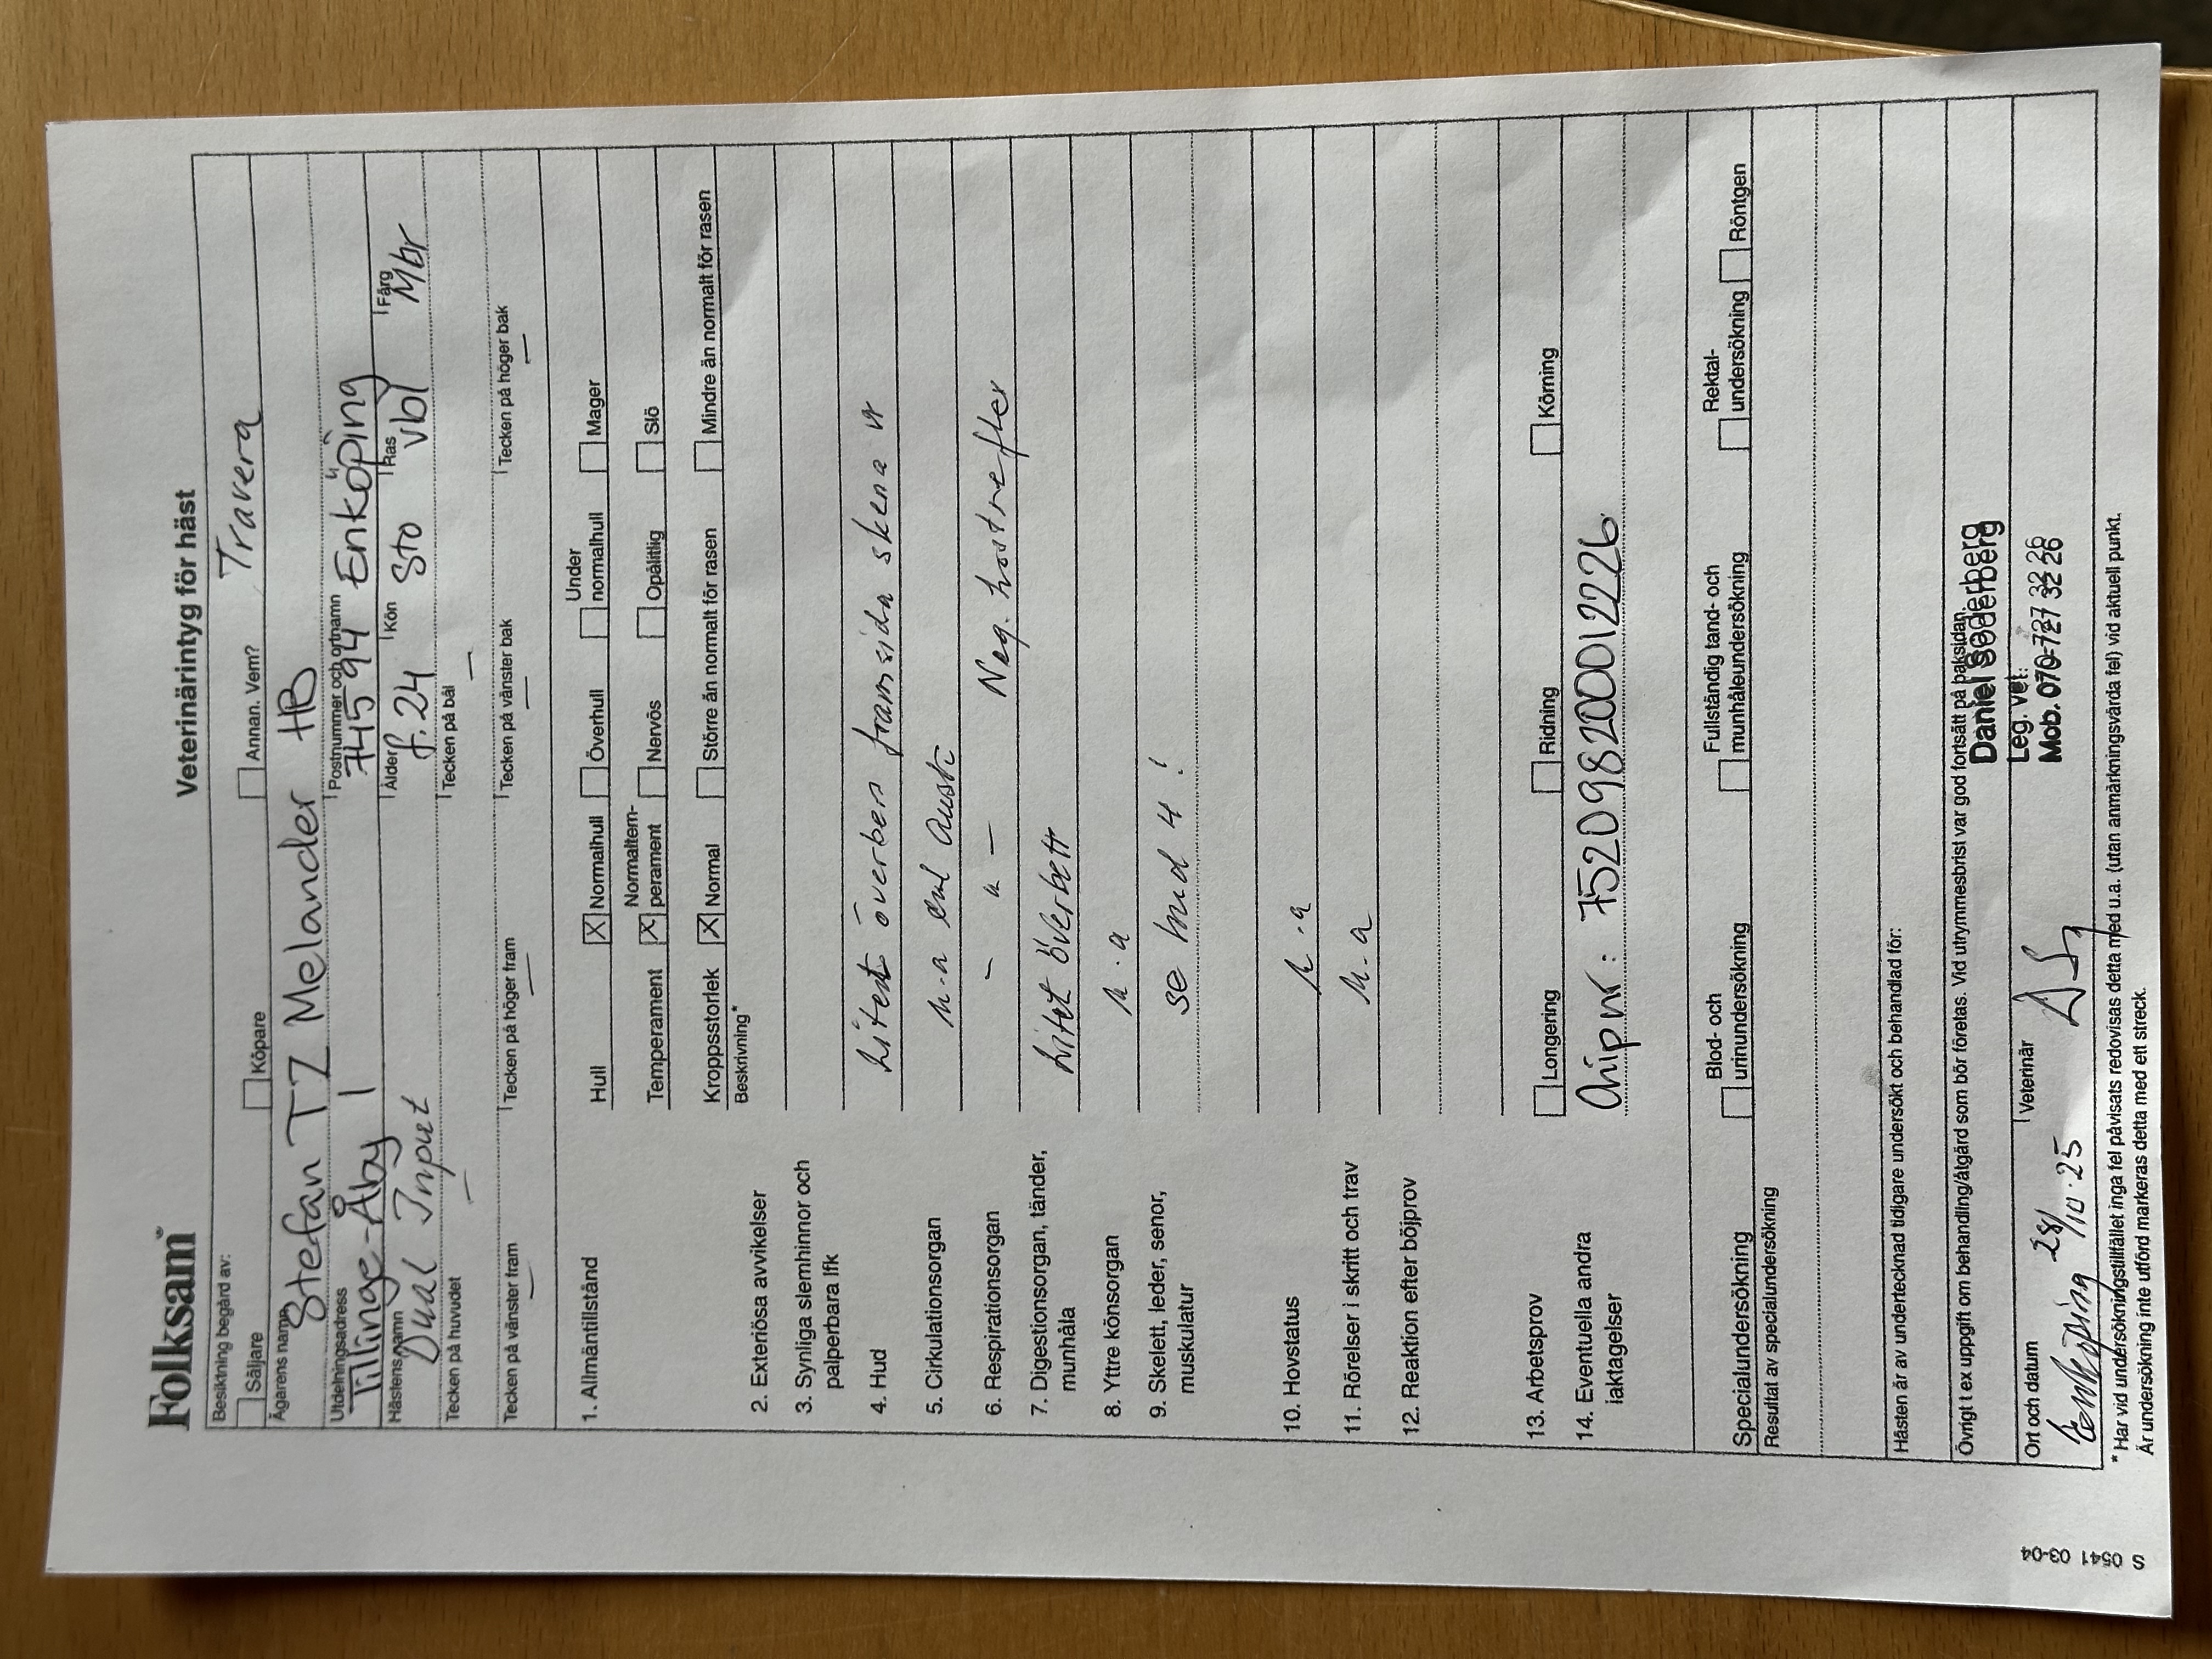 Folksam
Veterinärintyg för häst
Besiktning begärd av:
Säljare Köpare Annan. Vem? Travera
Ägarens namn
Stefan TZ Melander HB
Utdelningsadress Postnummer och ortnamn
Tillinge-Åby 1 745 94 Enköping
Hästens namn Ålder Kön Ras Färg
Dual Input f. 24 Sto vbl Mbr
Tecken på huvudet Tecken på bål
— —
Tecken på vänster fram Tecken på höger fram Tecken på vänster bak Tecken på höger bak
— — — —
1. Allmäntillstånd Hull X Normalhull Överhull Under normalhull Mager
Temperament X Normaltem-perament Nervös Opålitlig Slö
Kroppsstorlek X Normal Större än normalt för rasen Mindre än normalt för rasen
Beskrivning*
2. Exteriösa avvikelser
3. Synliga slemhinnor och
palperbara lfk
4. Hud Litet överben framsida skena
5. Cirkulationsorgan u.a enl Ausk
6. Respirationsorgan — " — Neg. hostrefter
7. Digestionsorgan, tänder, Litet överbett
munhåla
8. Yttre könsorgan u.a
9. Skelett, leder, senor, se hud 4!
muskulatur
10. Hovstatus u.a
11. Rörelser i skritt och trav u.a
12. Reaktion efter böjprov
13. Arbetsprov Longering Ridning Körning
14. Eventuella andra Chipnr: 752098200012226
iakttagelser
Specialundersökning Blod- och urinundersökning Fullständig tand- och munhåleundersökning Rektal-undersökning Röntgen
Resultat av specialundersökning
Hästen är av undertecknad tidigare undersökt och behandlad för:
Övrigt t ex uppgift om behandling/åtgärd som bör företas. Vid utrymmesbrist var god fortsätt på baksidan.
Daniel Söderberg
Leg. vet.
Mob. 070-727 32 26
Ort och datum Veterinär
Enköping 28/10.25
* Har vid undersökningstillfället inga fel påvisats redovisas detta med u.a. (utan anmärkningsvärda fel) vid aktuell punkt.
Är undersökning inte utförd markeras detta med ett streck.
S 0541 03-04